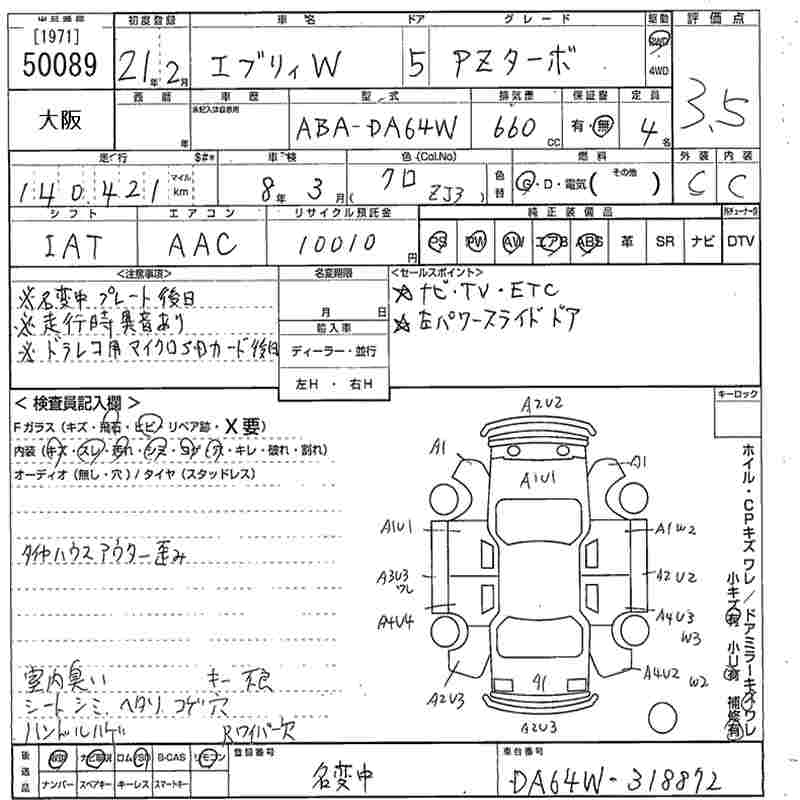 出品番号 初度登録 車名 ドア グレード 駆動 評価点
[1971]
50089 21年2月 エブリィW 5 PZターボ 2WD 4WD 3.5
大阪 西暦 年 車歴 未記入は自家用 型式 ABA-DA64W 排気量 660 CC 保証書 有・無 定員 4名
走行 $#* 車検 色(Col.No) 燃料 その他 外装 内装
140,421 マイル km 8年3月 (クロ ZJ3) 色替 G・D・電気( ) C C
シフト エアコン リサイクル預託金 純正装備品
IAT AAC 10010円 PS PW AW エアB ABS 革 SR ナビ DTV
<注意事項> 名変期限 <セールスポイント>
※名変中 プレート後日 月 日 ☆ナビ・TV・ETC
※走行時異音あり 輸入車 ☆左パワースライドドア
※ドラレコ用マイクロSDカード後日 ディーラー・並行
左H ・ 右H
< 検査員記入欄 > キーロック
Fガラス (キズ・飛石・ヒビ・リペア跡・X要)
内装 (キズ・スレ・汚れ・シミ・コゲ・穴・キレ・破れ・割れ)
オーディオ (無し・穴) / タイヤ (スタッドレス)
タイヤハウスアウター歪み
室内臭い キー不良
シートシミ、ヘタリ コゲ穴
ハンドルハゲ Rワイパー欠
A2U2
A1 A1
A1U1
A1U1 A1W2
A3U3 ワレ A2U2
A4U4 A4U3 W3
A2U3 A1 A4U2 W2
A2U3
ホイル・CPキズ ワレ / ドアミラーキズ ワレ
小キズ有 小U有 補修有
後送品 ナビ ロム SD B-CAS リモコン 登録番号 車台番号
ナンバー スペアキー キーレス スマートキー 名変中 DA64W-318872